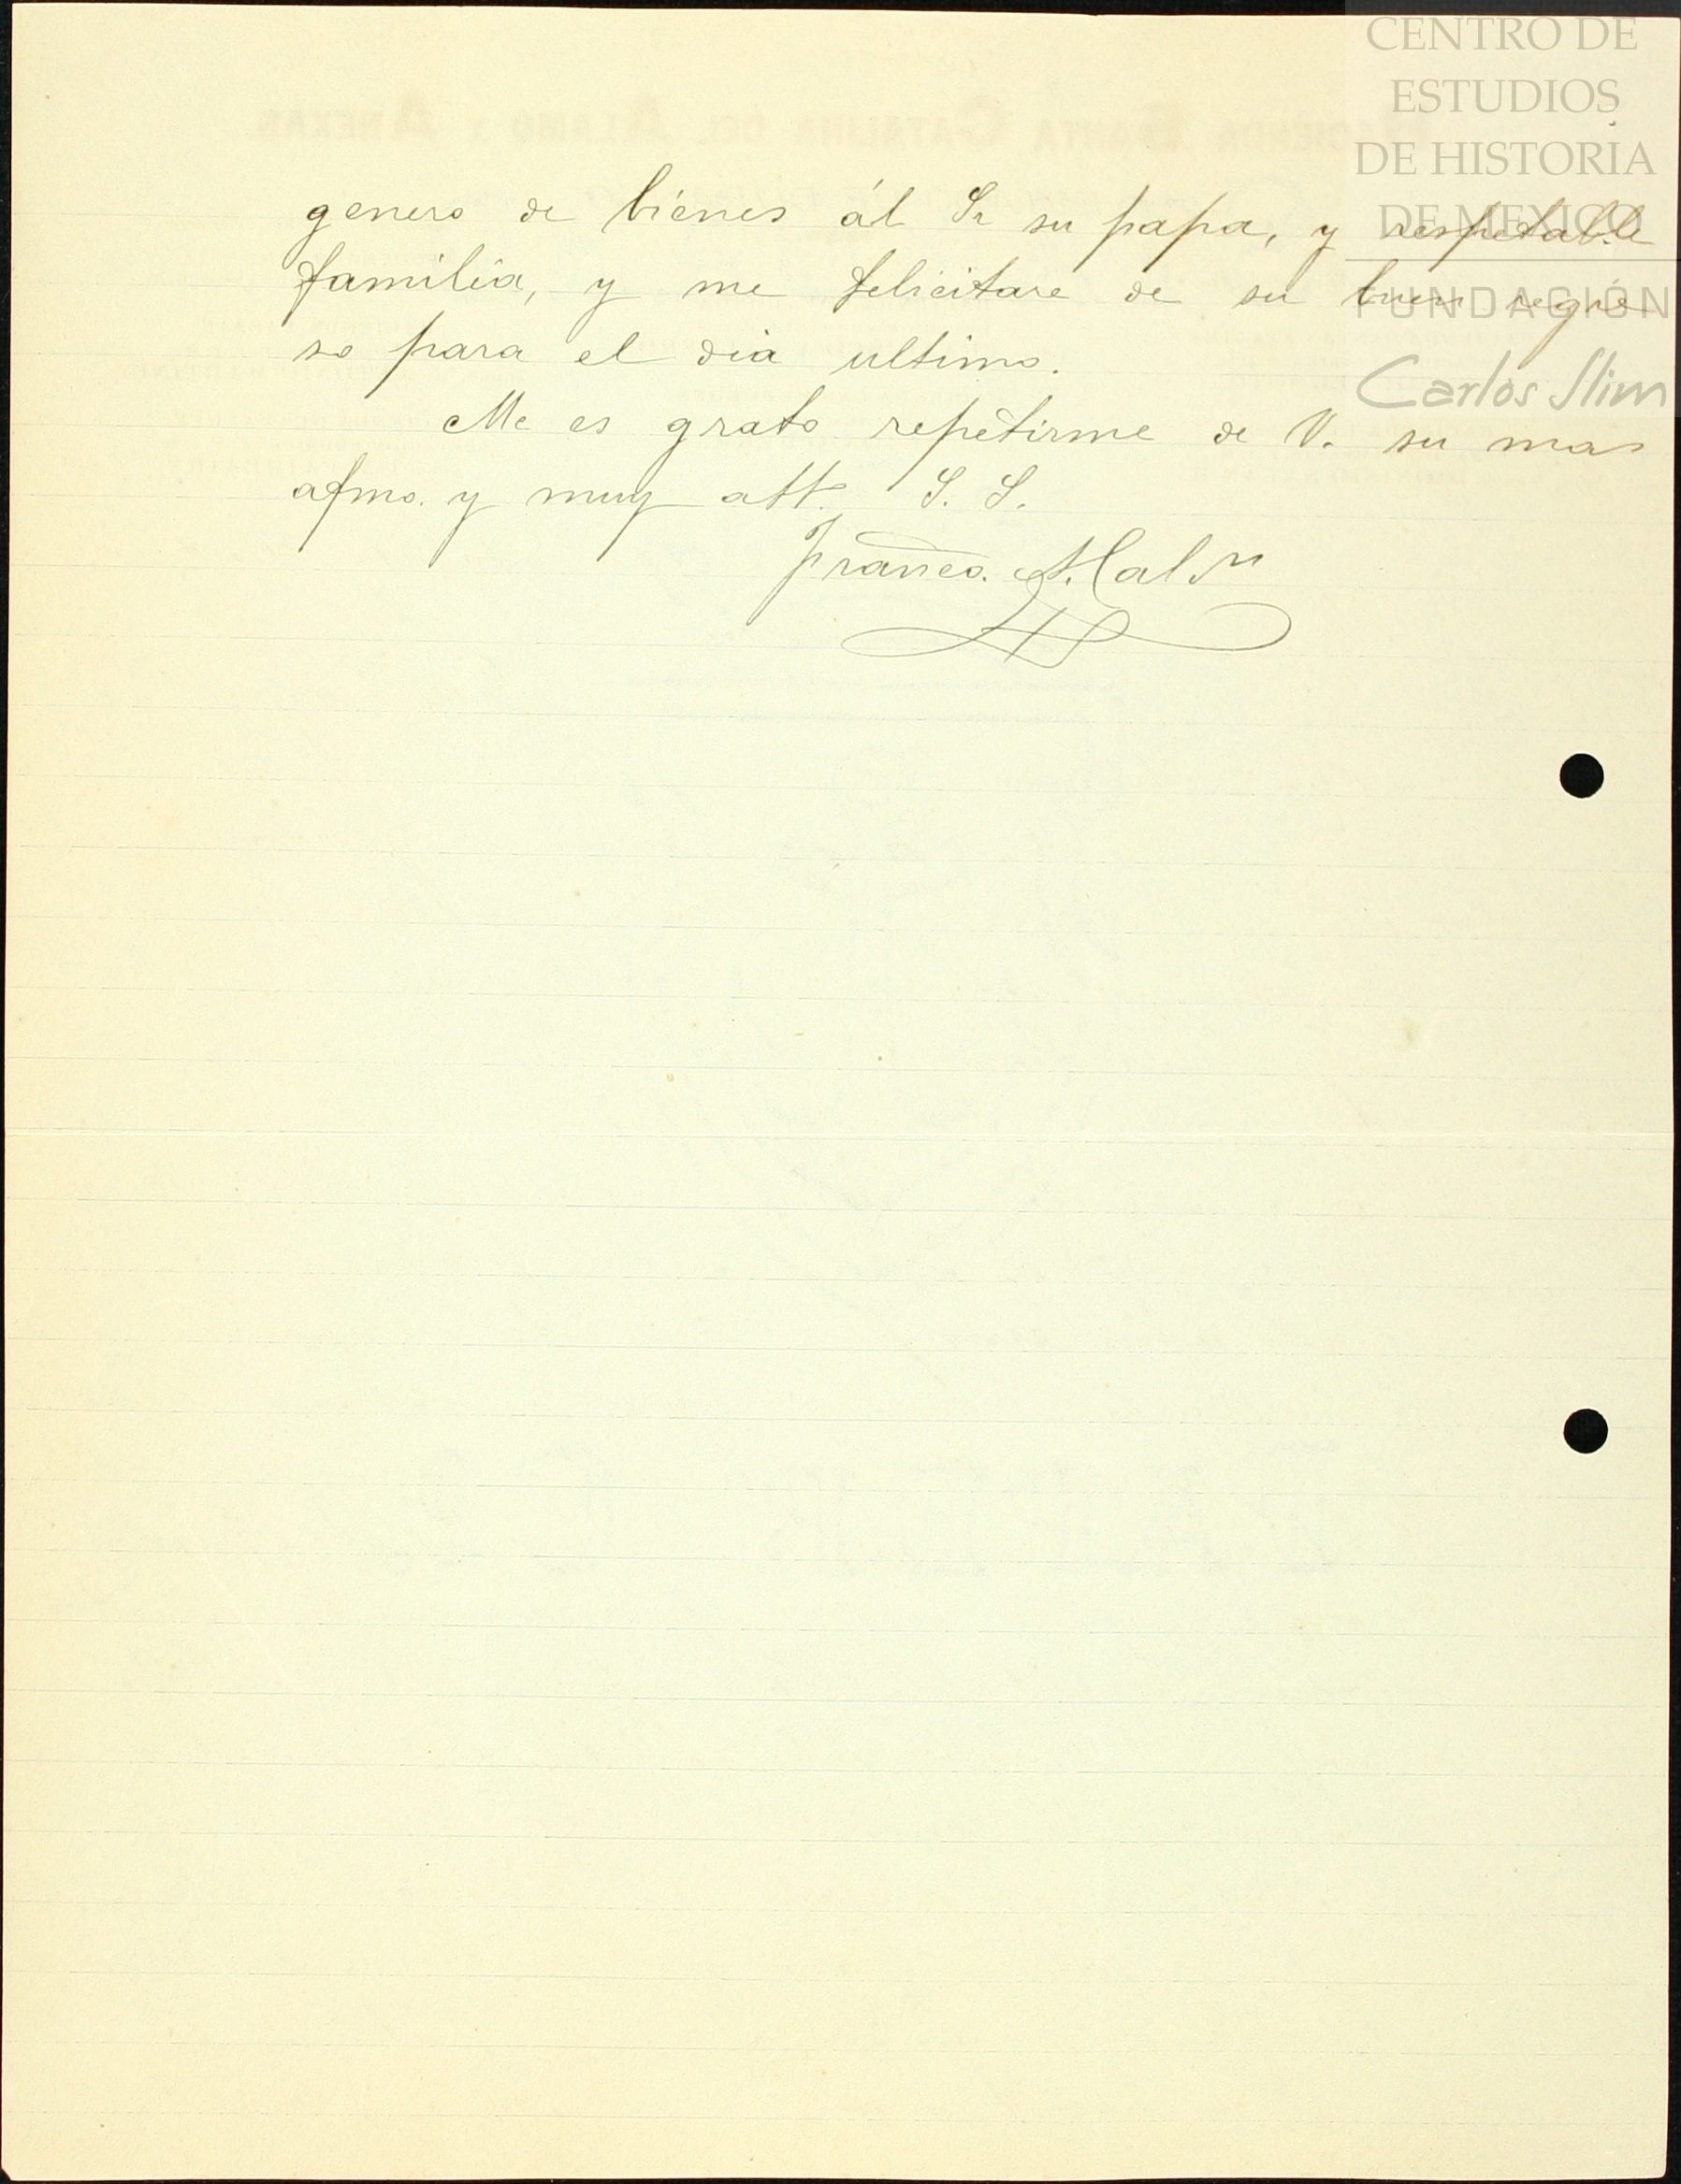 CENTRO DE
ESTUDIOS
DE HISTORIA
DE MEXICO
FUNDACIÓN
Carlos Slim
HACIENDA SANTA CATALINA DEL ALAMO Y ANEXAS.
genero de bienes ál Sr su papa, y respetable
familia, y me felicitare de su buen regre
so para el dia ultimo.
Me es grato repetirme de V. su mas
afmo. y muy att. S. S.
Franco.